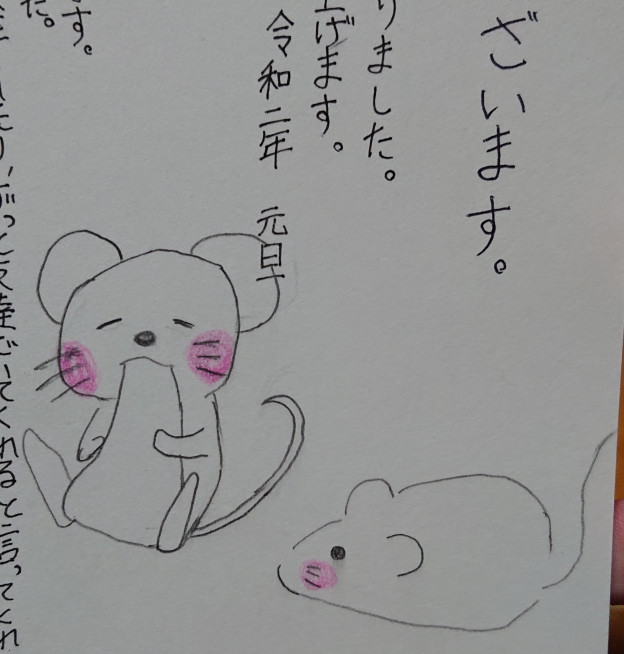 ざいます。
りました。
上げます。
令和二年 元旦
す。
た。
たり、ずっと友達でいてくれると言ってくれ